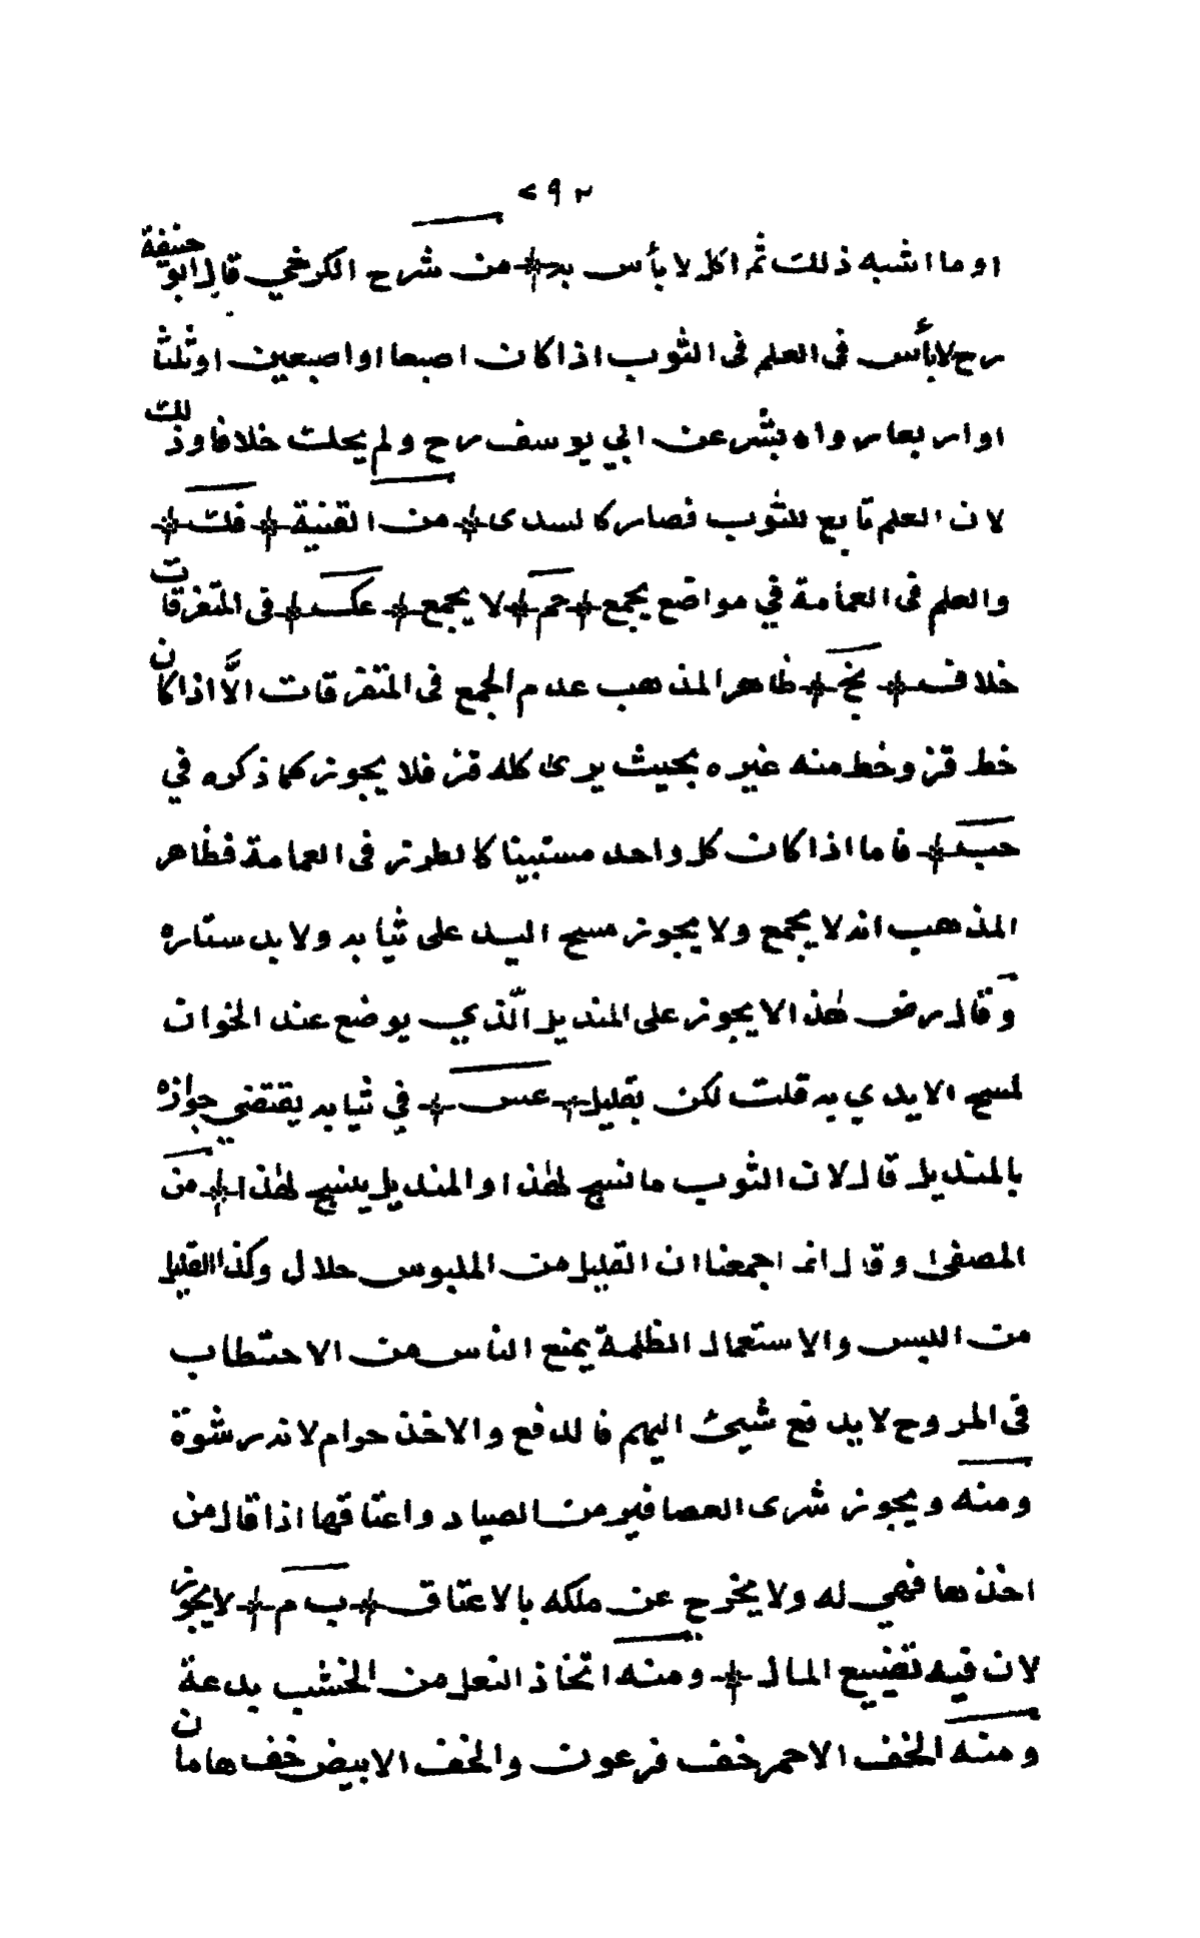 ٢٩٢
او ما اشبه ذلك ثم اكل لا بأس به ⁜ من شرح الكرخي قال ابو حنيفة
رح لا بأس فى العلم فى الثوب اذا كان اصبعا او اصبعين او ثلثا
او اربعا رواه بشر عن ابي يوسف رح ولم يحك خلافا وذلك
لان العلم تابع للثوب فصار كالسدى ⁜ من القنية ⁜ فك ⁜
والعلم فى العمامة في مواضع يجمع ⁜ حم ⁜ لا يجمع ⁜ عك ⁜ فى المتفرقات
خلاف ⁜ نخ ⁜ ظاهر المذهب عدم الجمع فى المتفرقات الّا اذا كان
خط قز وخط منه غيره بحيث يرى كله قز فلا يجوز كما ذكره في
حب ⁜ فاما اذا كان كل واحد مستبينا كالطرز فى العمامة فظاهر
المذهب انه لا يجمع ولا يجوز مسح اليد على ثيابه ولا بد ستاره
وقال رض هذا لا يجوز على المنديل الّذي يوضع عند الخوان
لمسح الايدي به قلت لكن بقليل ⁜ عس ⁜ في ثيابه يقتضي جوازه
بالمنديل قال لان الثوب ما نسج لهذا والمنديل ينسج لهذا ⁜ من
المصفى وقال انه اجمعنا ان القليل من الملبوس حلال وكذا القليل
من اللبس والاستعمال الظلمة يمنع الناس من الاحتطاب
فى المروح لا يدفع شيئ اليهم فالدفع والاخذ حرام لانه رشوة
ومنه ويجوز شرى العصافير من الصياد واعتاقها اذا قال من
اخذها فهي له ولا يخرج عن ملكه بالاعتاق ⁜ ب م ⁜ لا يجوز
لان فيه تضييع المال ⁜ ومنه اتخاذ النعل من الخشب بدعة
ومنه الخف الاحمر خف فرعون والخف الابيض خف هامان